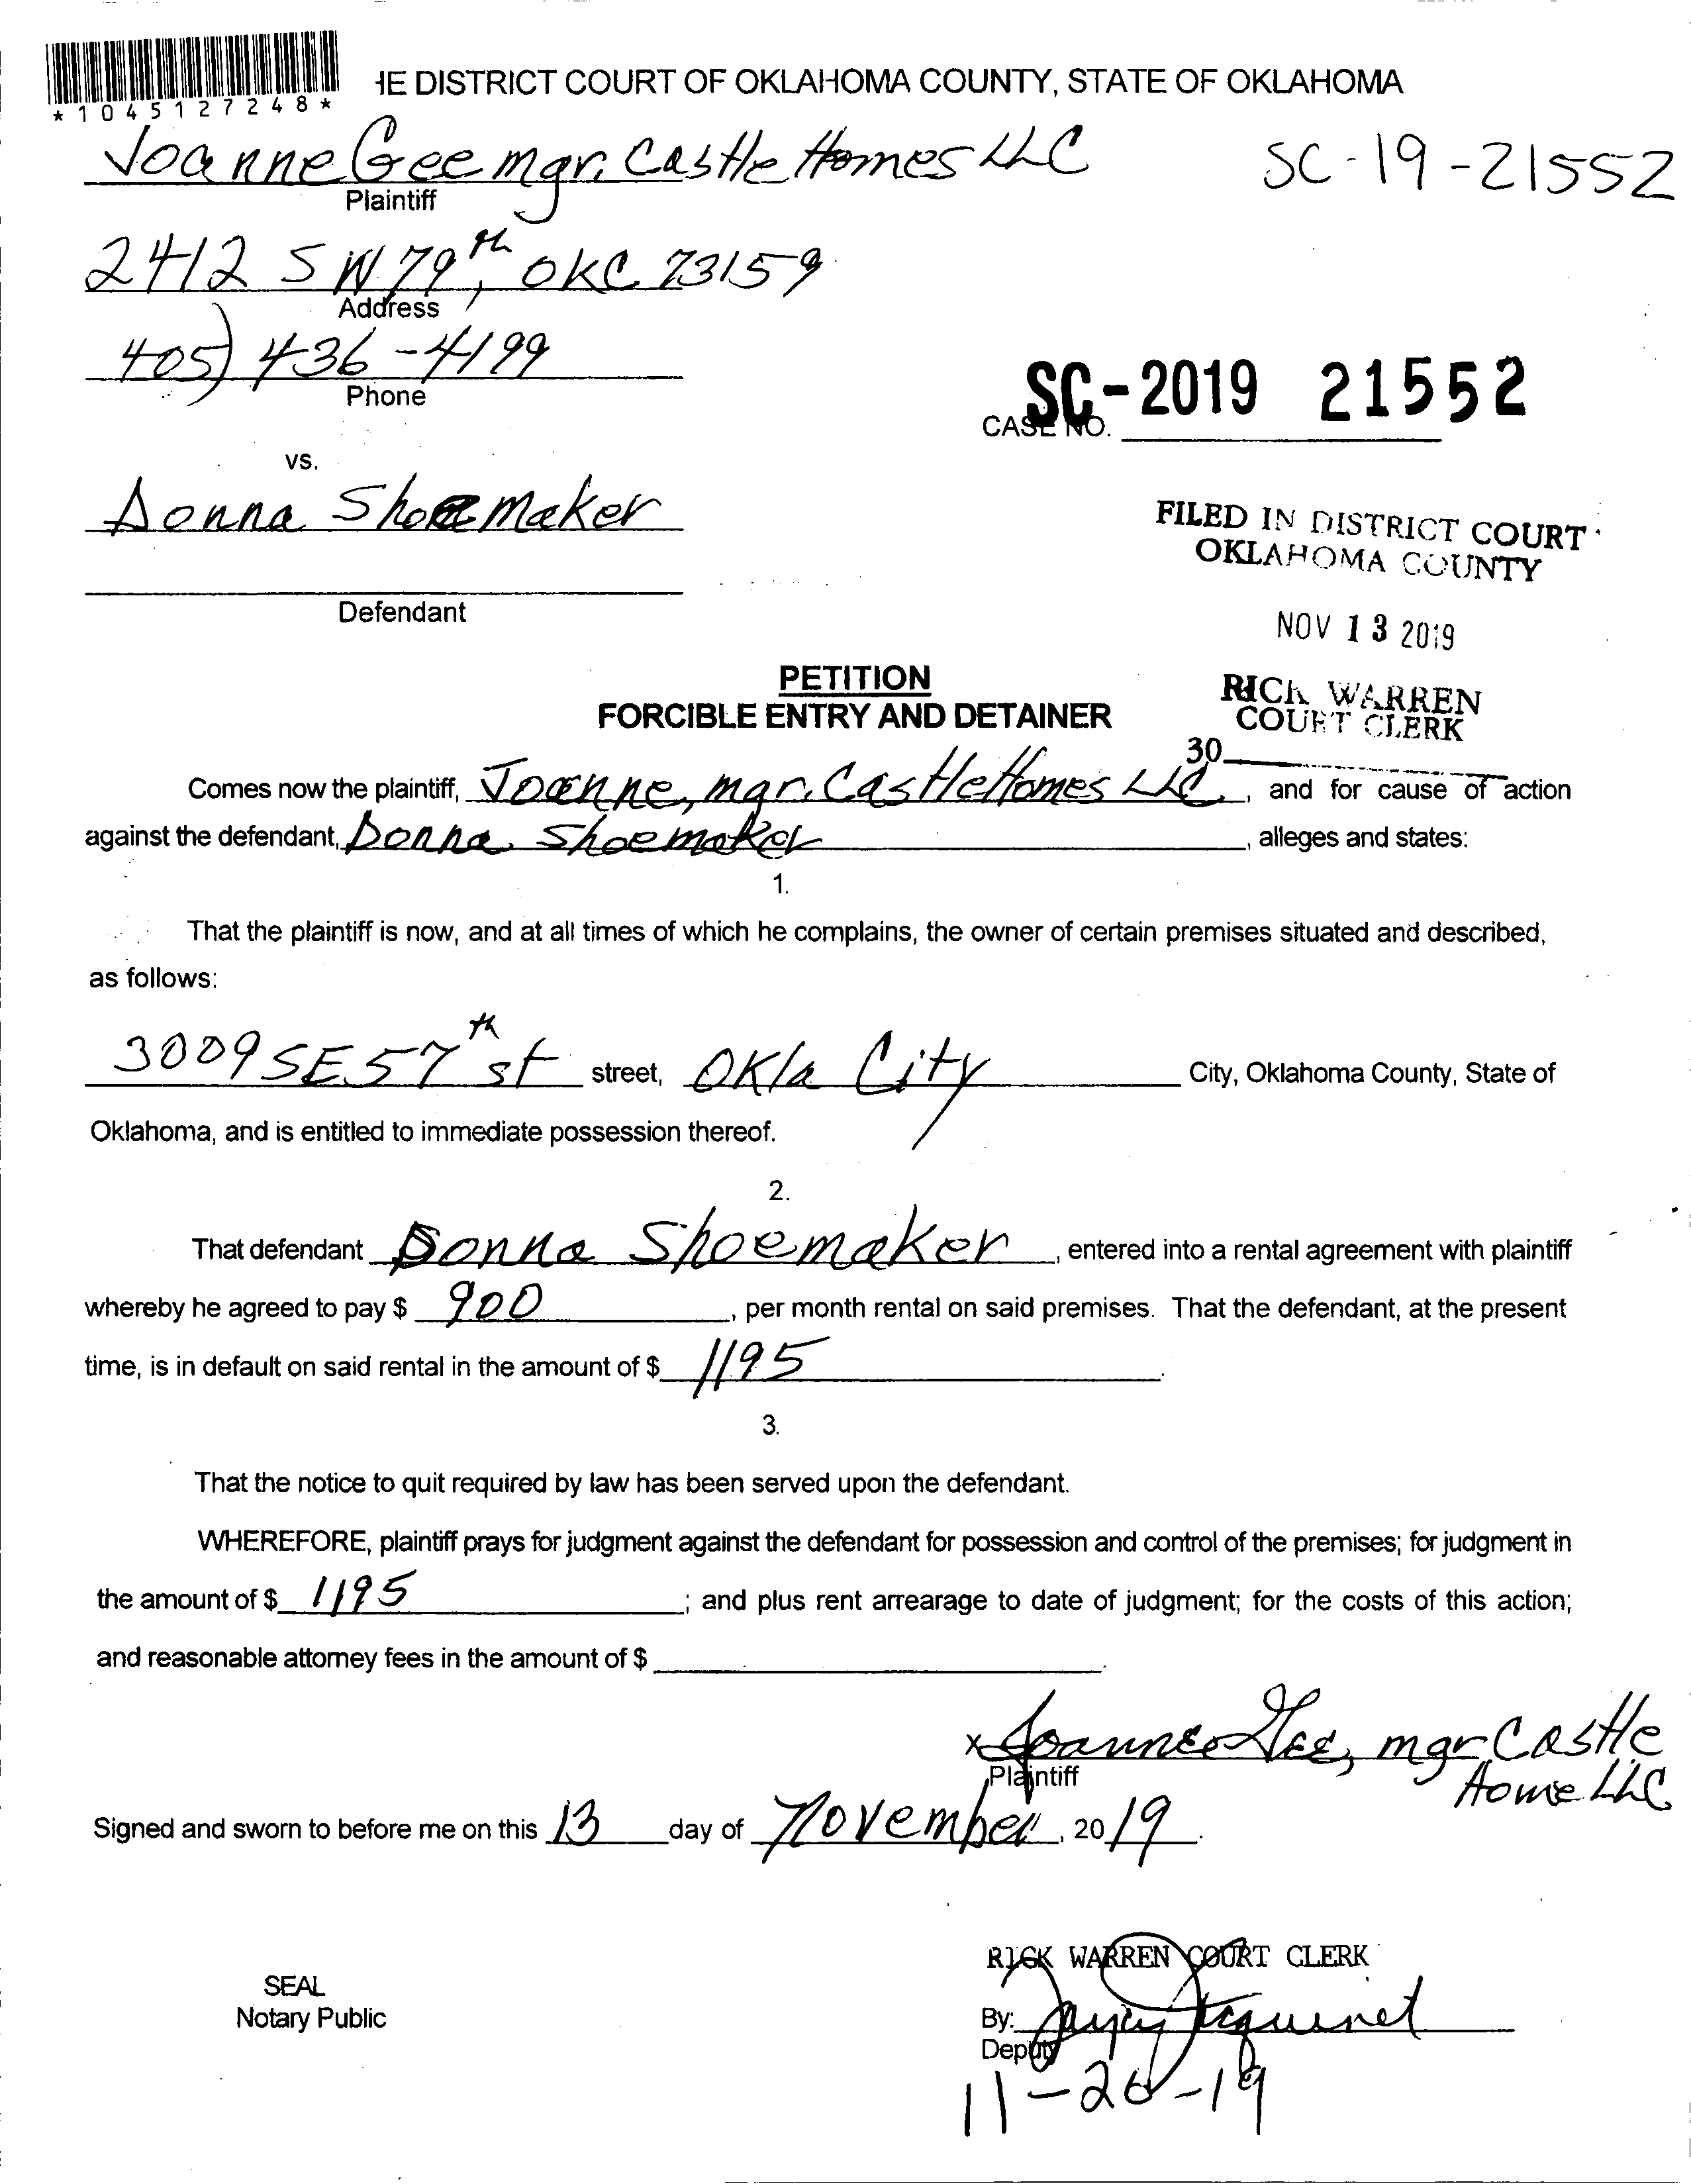 *1045127248*
HE DISTRICT COURT OF OKLAHOMA COUNTY, STATE OF OKLAHOMA
Joanne Gee mgr. Castle Homes LLC
SC-19-21552
Plaintiff
2412 SW 79th, OKC 73159
Address
405) 436-4199
Phone
SC-2019 21552
CASE NO.
vs.
Donna Shoemaker
FILED IN DISTRICT COURT
OKLAHOMA COUNTY
Defendant
NOV 13 2019
PETITION
FORCIBLE ENTRY AND DETAINER
RICK WARREN
COURT CLERK
30
Comes now the plaintiff, Joanne, mgr. Castle Homes LLC, and for cause of action
against the defendant, Donna Shoemaker, alleges and states:
1.
That the plaintiff is now, and at all times of which he complains, the owner of certain premises situated and described,
as follows:
3009 SE 57th st street, Okla City City, Oklahoma County, State of
Oklahoma, and is entitled to immediate possession thereof.
2.
That defendant Donna Shoemaker, entered into a rental agreement with plaintiff
whereby he agreed to pay $ 900, per month rental on said premises. That the defendant, at the present
time, is in default on said rental in the amount of $ 1195.
3.
That the notice to quit required by law has been served upon the defendant.
WHEREFORE, plaintiff prays for judgment against the defendant for possession and control of the premises; for judgment in
the amount of $ 1195; and plus rent arrearage to date of judgment; for the costs of this action;
and reasonable attorney fees in the amount of $ .
x Joanne Gee, mgr Castle
Home LLC
Plaintiff
Signed and sworn to before me on this 13 day of November, 2019.
RICK WARREN COURT CLERK
SEAL
Notary Public
By:
Deputy
11-26-19